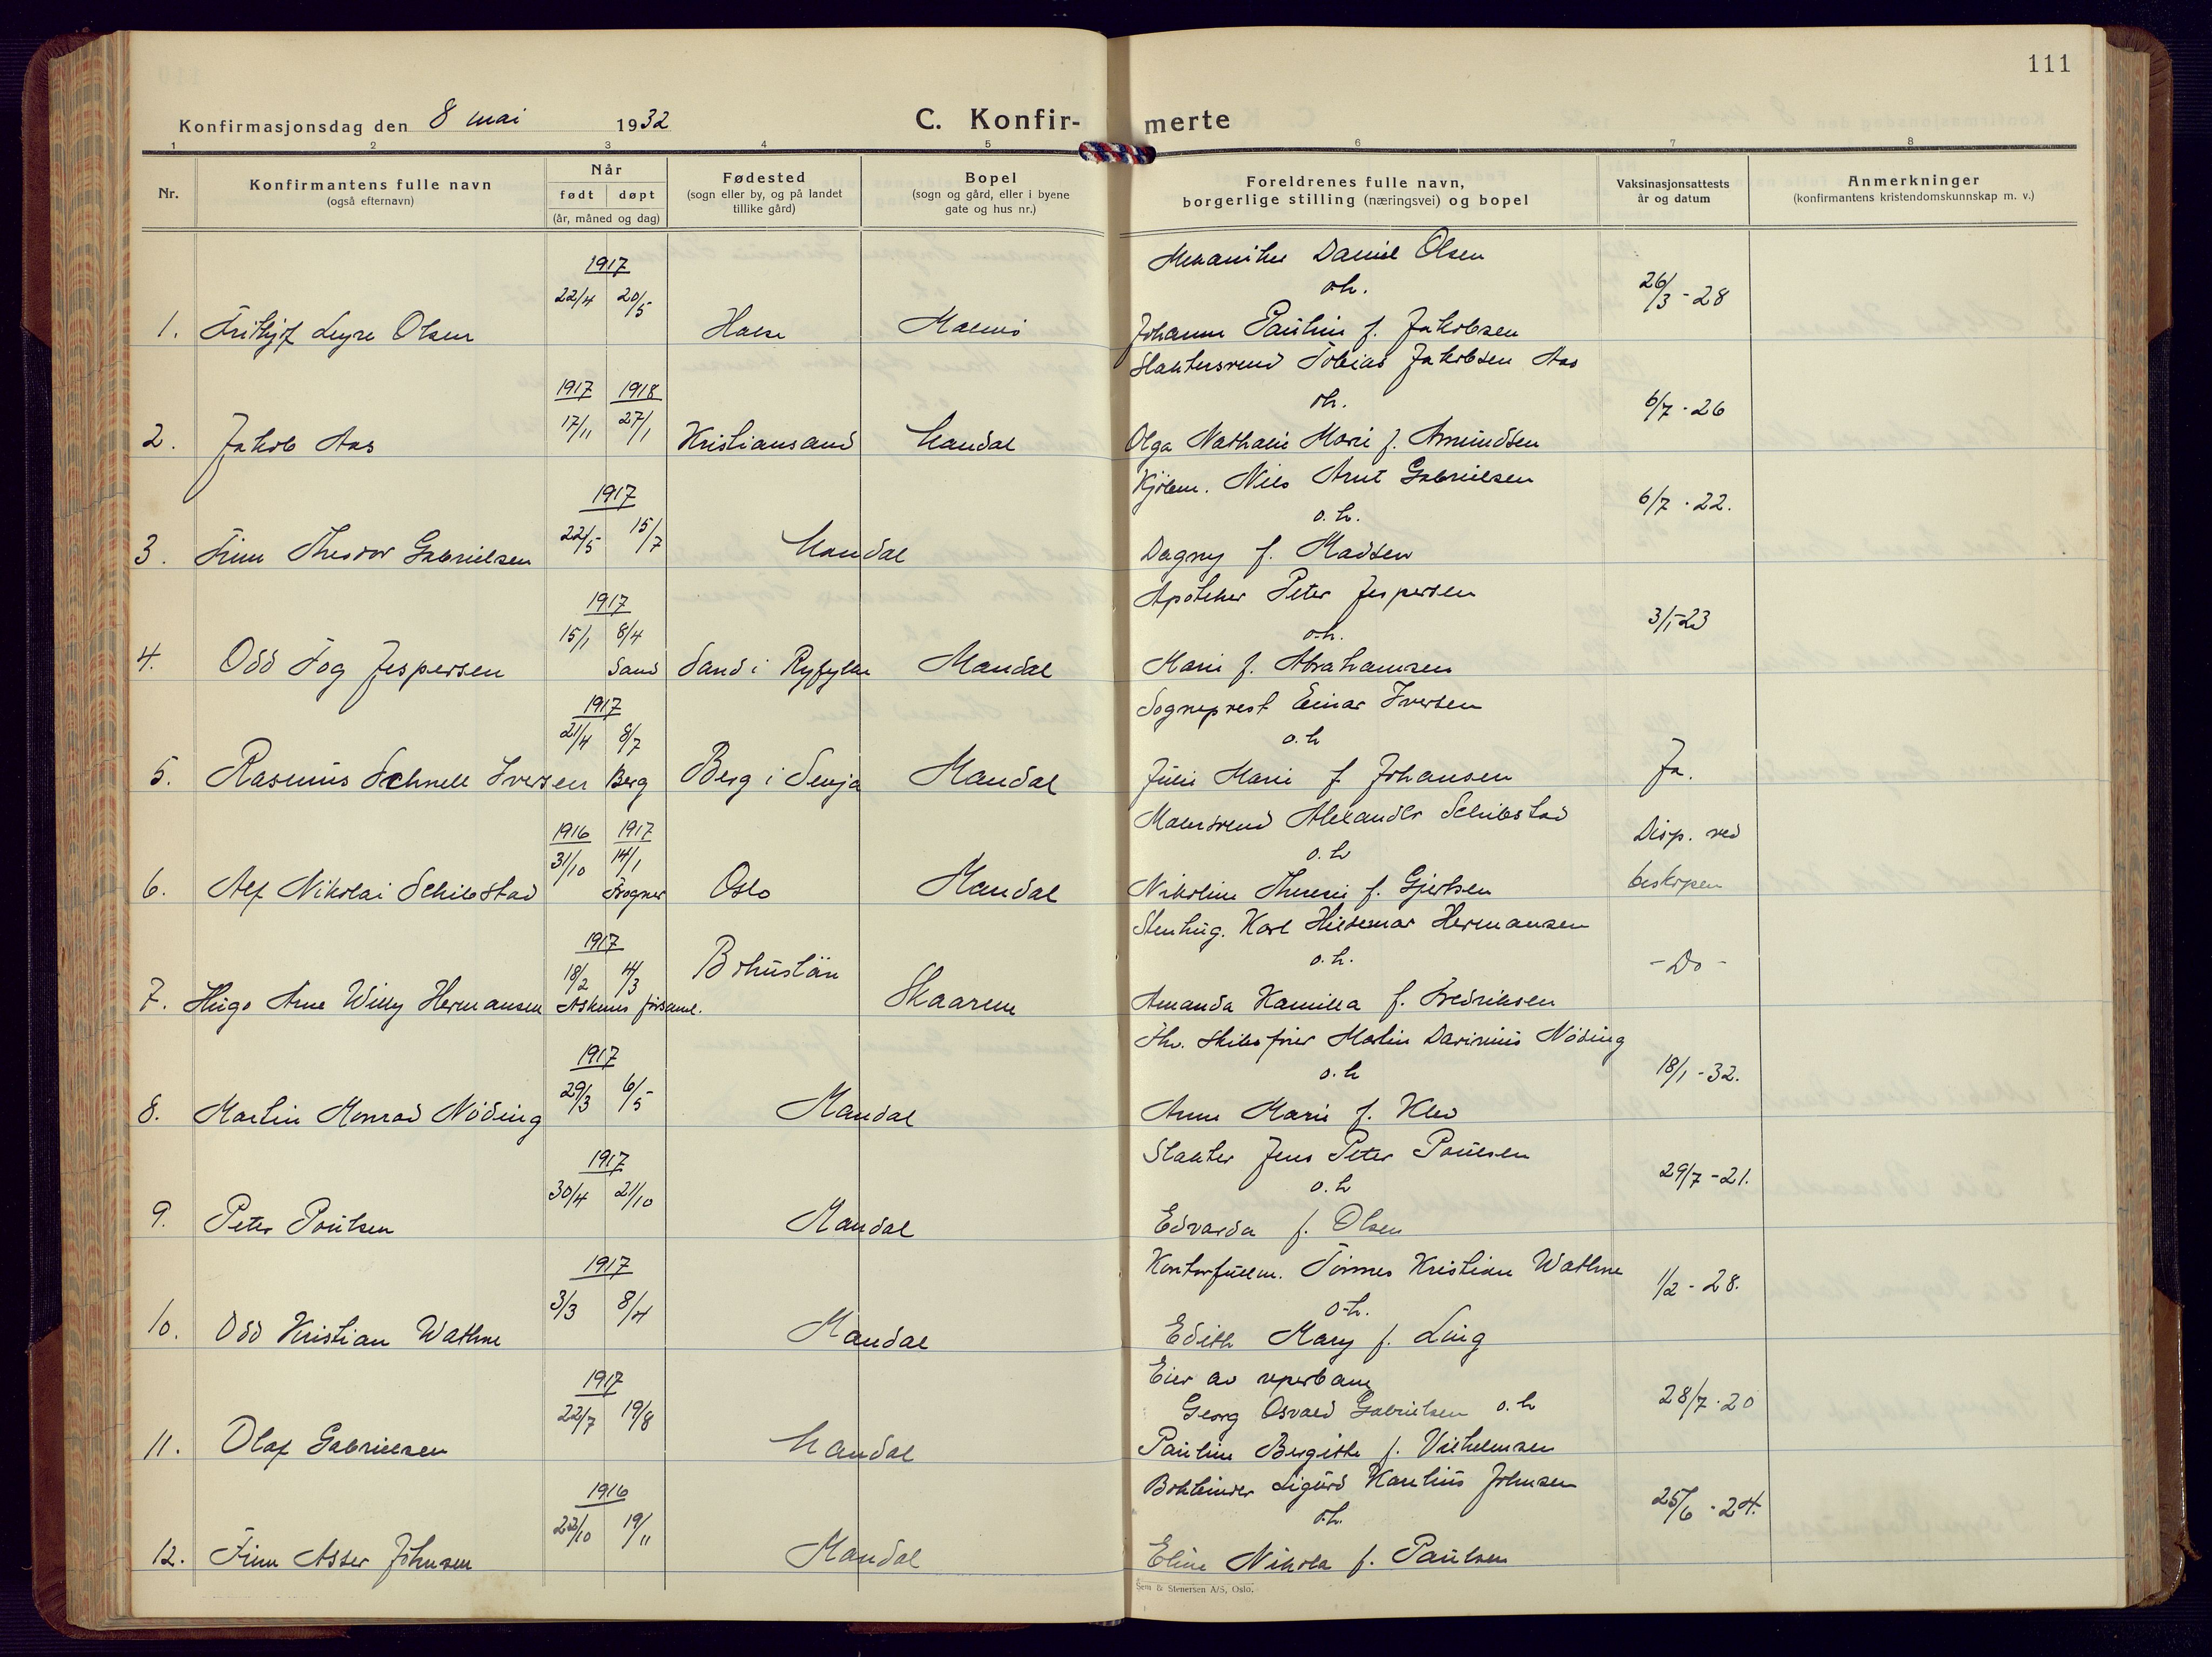 111
Konfirmasjonsdag den 8 mai 1932
C. Konfir- merte
1 2 3 4 5 6 7 8
Nr.
Konfirmantens fulle navn
(også efternavn)
Når
født døpt
(år, måned og dag)
Fødested
(sogn eller by, og på landet
tillike gård)
Bopel
(sogn og gård, eller i byene
gate og hus nr.)
Foreldrenes fulle navn,
borgerlige stilling (næringsvei) og bopel
Vaksinasjonsattests
år og datum
Anmerkninger
(konfirmantens kristendomskunnskap m. v.)
1917
22/4 20/5
1. Frithjof Leyre Olsen Halse Malmø
Mekaniker Daniel Olsen
o.h.
Johanne Pauline f. Jakobsen
26/3 - 28
1917 1918
17/11 27/1
2. Jakob Aas Kristiansand Mandal
Slaktersvend Tobias Jakobsen Aas
o.h.
Olga Nathalie Marie f. Amundsen
6/7 - 26
1917
22/5 15/7
3. Finn Theodor Gabrielsen Mandal
Kjøbm. Nils Arnt Gabrielsen
o. h.
Dagny f. Madsen
6/7 - 22.
1917
15/1 8/4
4. Odd Tog Jespersen Sand Sand i Ryfylke Mandal
Apoteker Peter Jespersen
o.h.
Marie f. Abrahamsen
3/1-23
1917
21/4 8/7
5. Rasmus Schnell Iversen Berg Berg i Senja Mandal
Sogneprest Einar Iversen
o. h
Julie Marie f. Johansen
Ja.
1916 1917
31/10 14/1
6. Alf Nikolai Schibstad Frogner Oslo Mandal
Malersvend Alexander Schibstad
o. h
Nikoline Therese f. Gjertsen
Disp. ved
biskopen
1917
18/2 14/3
7. Hugo Arne Willy Hermansen Askums församl. Bohuslän Skaaren
Stenhug. Karl Hildemar Hermansen
o. h.
Amanda Kamilla f. Fredriksen
- Do -
1917
29/3 6/5
8. Martin Konrad Nøding Mandal
Fhv. skibsfører Martin Darinius Nøding
o. h
Anne Marie f. Klev
18/1 - 32.
1917
30/4 21/10
9. Peter Poulsen Mandal
Slakter Jens Peter Poulsen
o. h
Edvarda f. Olsen
29/7 - 21.
1917
3/3 8/4
10. Odd Kristian Wathne Mandal
Kontorfullm. Tønnes Kristian Wathne
o.h.
Edith Mary f. Ling
1/2 - 28.
1917
22/7 19/8
11. Olaf Gabrielsen Mandal
Eier av
Georg Osvald Gabrielsen o. h
Pauline Bergitte f. Vilhelmsen
28/7 - 20
1916
22/10 19/11
12. Finn Asser Johnsen Mandal
Bokbinder Sigurd Karelius Johnsen
o.h.
Eline Nikola f. Paulsen
25/6 - 24.
Sem & Stenersen A/S, Oslo.